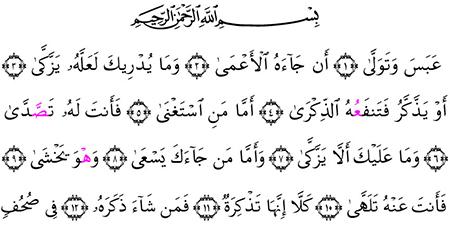 بِسْمِ اللَّهِ الرَّحْمَٰنِ الرَّحِيمِ
عَبَسَ وَتَوَلَّىٰ ﴿١﴾ أَن جَآءَهُ الْأَعْمَىٰ ﴿٢﴾ وَمَا يُدْرِيكَ لَعَلَّهُۥ يَزَّكَّىٰ ﴿٣﴾
أَوْ يَذَّكَّرُ فَتَنفَعُهُ الذِّكْرَىٰ ﴿٤﴾ أَمَّا مَنِ اسْتَغْنَىٰ ﴿٥﴾ فَأَنتَ لَهُۥ تَصَّدَّىٰ
﴿٦﴾ وَمَا عَلَيْكَ أَلَّا يَزَّكَّىٰ ﴿٧﴾ وَأَمَّا مَن جَآءَكَ يَسْعَىٰ ﴿٨﴾ وَهْوَ يَخْشَىٰ ﴿٩﴾
فَأَنتَ عَنْهُ تَلَهَّىٰ ﴿١٠﴾ كَلَّآ إِنَّهَا تَذْكِرَةٌ ﴿١١﴾ فَمَن شَآءَ ذَكَرَهُۥ ﴿١٢﴾ فِى صُحُفٍ